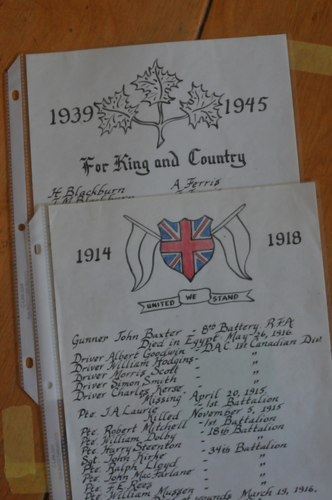 1939 1945
For King and Country
H. Blackburn A. Ferris
1914 1918
UNITED WE STAND
Gunner John Baxter - 8th Battery R.F.A
Died in Egypt May 16, 1916.
Driver Albert Goodwin - D.A.C. 1st Canadian Divi.
Driver William Hodgins - "
Driver Morris Scott - "
Driver Simon Smith - "
Driver Charles Kerse - "
Missing April 20, 1915.
Pte. J.A. Laurie - 1st Battalion
Killed November 5, 1915
Pte Robert Mitchell - 1st Battalion
Pte William Dolby - 18th Battalion
Pte Harry Steenton - "
Sgt. John Kirke - 34th Battalion
Pte Ralph Lloyd - "
Pte John MacFarlane - "
Pte F.E. Rees "
Pte William Mussen "
wounds March 19, 1916.